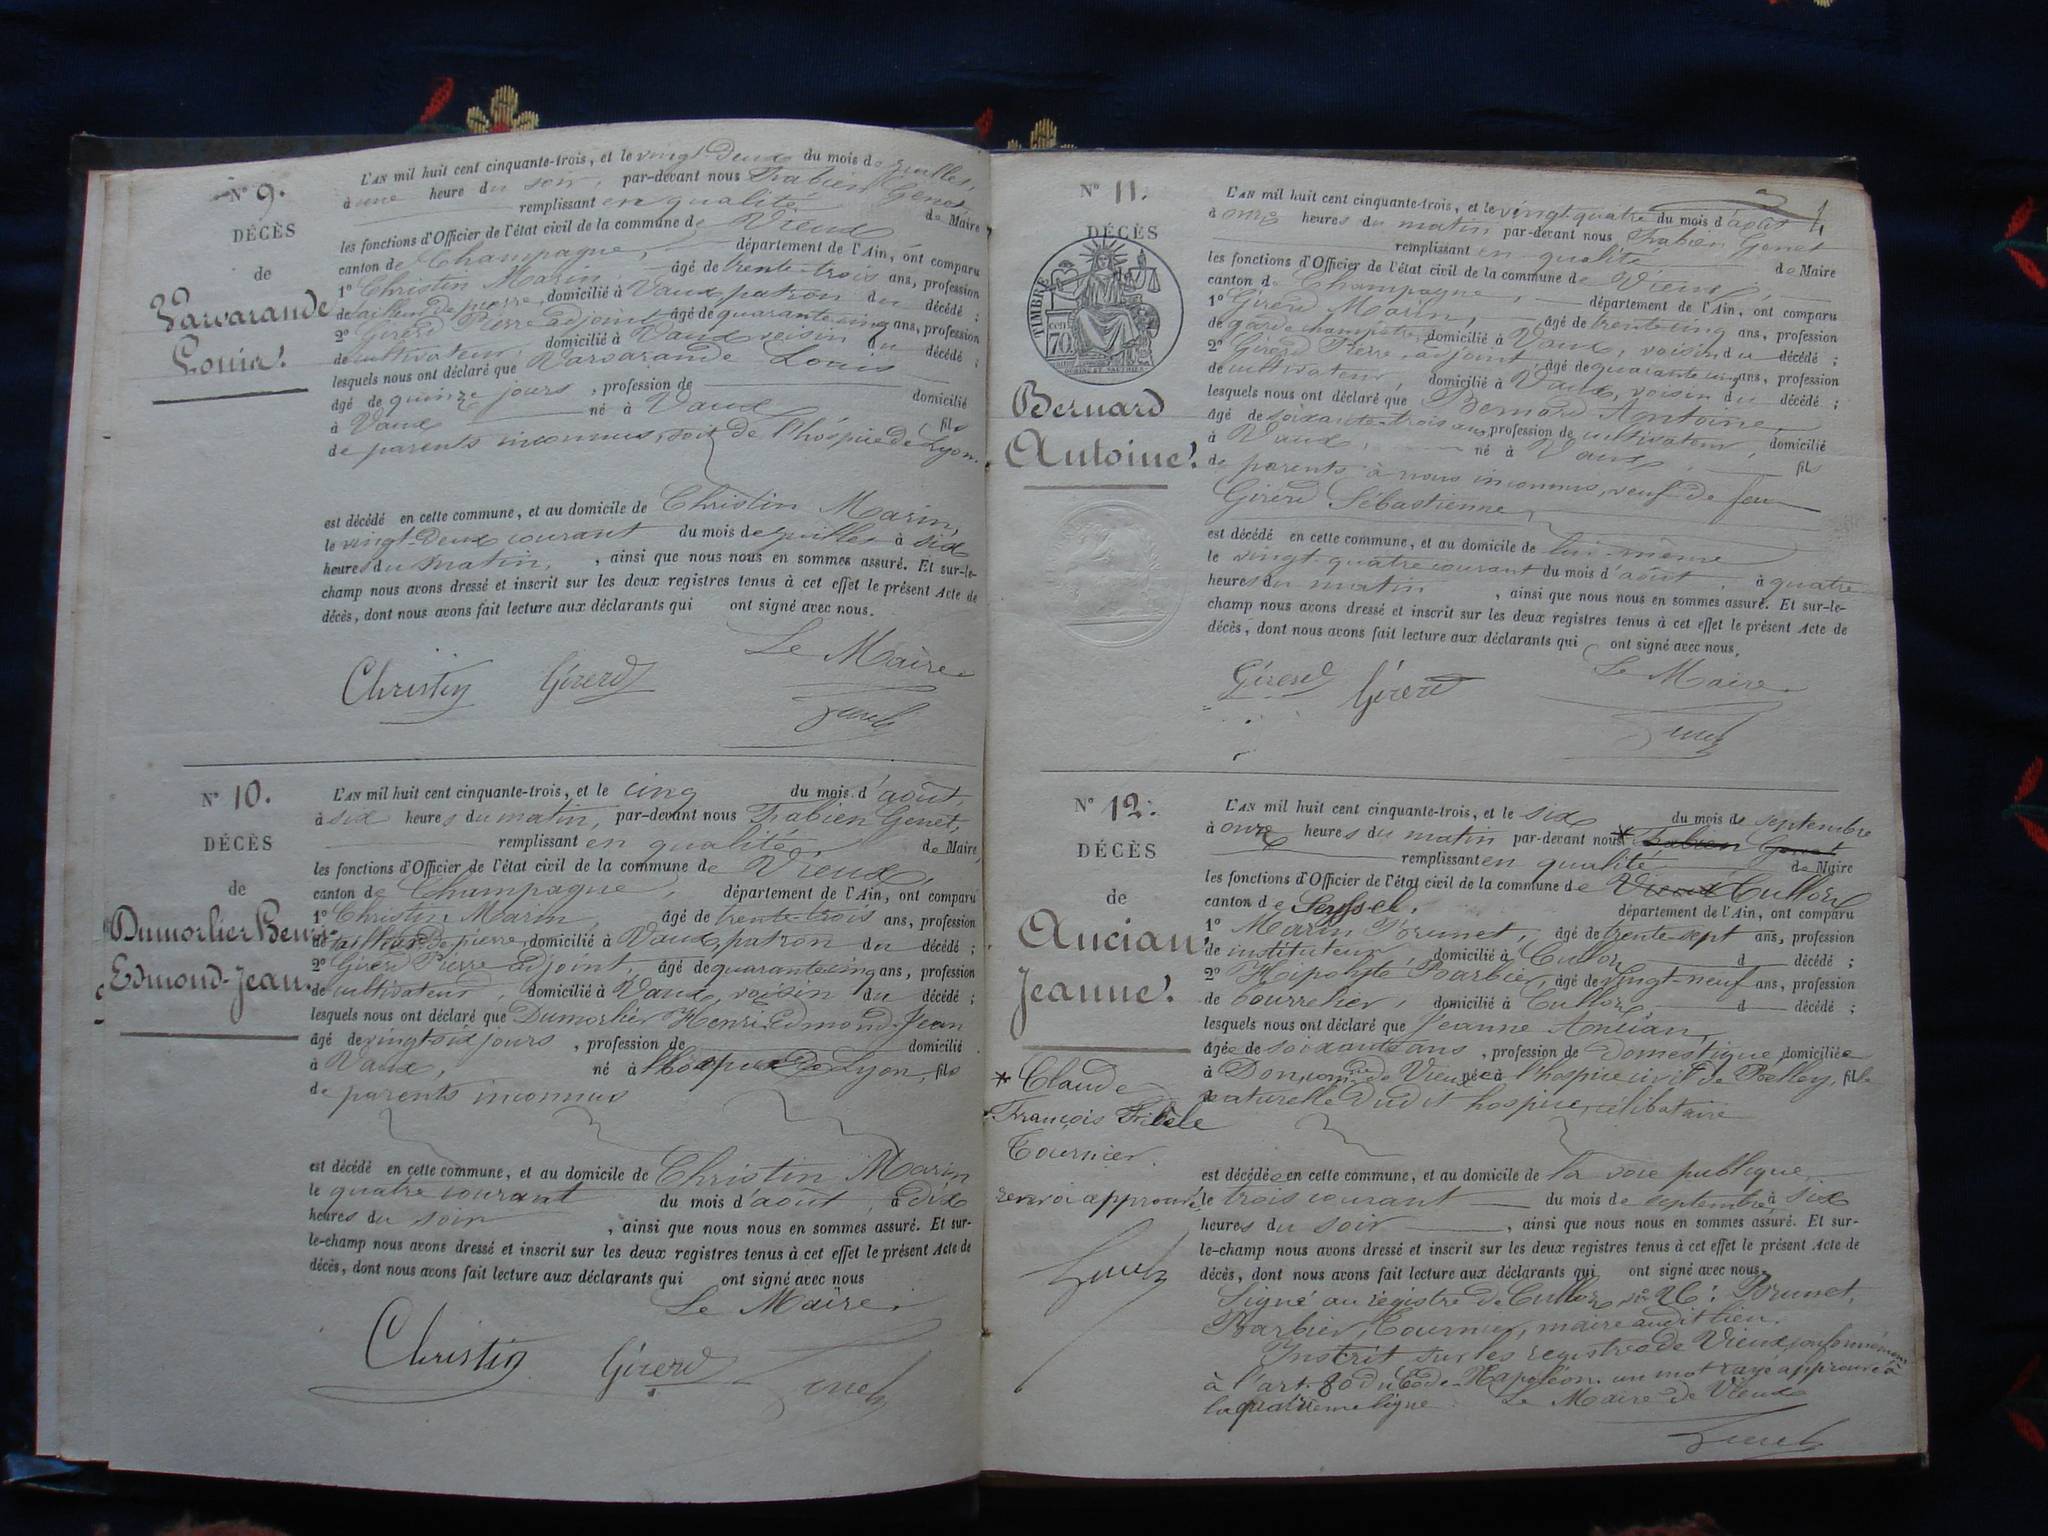 N° 9.
DÉCÈS
de
Varvarande
Louis.
L'AN mil huit cent cinquante-trois, et le vingt-deux du mois de juillet,
à une heure du soir, par-devant nous Fabien Genet
remplissant en qualité de Maire
les fonctions d'Officier de l'état civil de la commune de Vieux
canton de Champagne, département de l'Ain, ont comparu
1° Christin Marin, âgé de trente-trois ans, profession
de tailleur de pierre, domicilié à Vaux, patron du décédé ;
2° Girerd Pierre adjoint, âgé de quarante cinq ans, profession
de cultivateur, domicilié à Vaux voisin du décédé ;
lesquels nous ont déclaré que Varvarande Louis
âgé de quinze jours, profession de domicilié
à Vaux né à Vaux fils
de parents inconnus, soit de l'hospice de Lyon.
est décédé en cette commune, et au domicile de Christin Marin,
le vingt-deux courant du mois de juillet à six
heures du matin, , ainsi que nous nous en sommes assuré. Et sur-le-
champ nous avons dressé et inscrit sur les deux registres tenus à cet effet le présent Acte de
décès, dont nous avons fait lecture aux déclarants qui ont signé avec nous.
Le Maire
Christin Girerd Genet
N° 10.
DÉCÈS
de
Dumorlier Henri-
Edmond-Jean.
L'AN mil huit cent cinquante-trois, et le cinq du mois d'août,
à six heures du matin, par-devant nous Fabien Genet,
remplissant en qualité de Maire,
les fonctions d'Officier de l'état civil de la commune de Vieux,
canton de Champagne, département de l'Ain, ont comparu
1° Christin Marin, âgé de trente-trois ans, profession
de tailleur de pierre, domicilié à Vaux, patron du décédé ;
2° Girerd Pierre adjoint, âgé de quarante cinq ans, profession
de cultivateur, domicilié à Vaux, voisin du décédé ;
lesquels nous ont déclaré que Dumorlier Henri-Edmond-Jean
âgé de vingt-six jours, profession de domicilié
à Vaux, né à l'hospice de Lyon, fils
de parents inconnus
est décédé en cette commune, et au domicile de Christin Marin
le quatre courant du mois d'août, à dix
heures du soir , ainsi que nous nous en sommes assuré. Et sur-
le-champ nous avons dressé et inscrit sur les deux registres tenus à cet effet le présent Acte de
décès, dont nous avons fait lecture aux déclarants qui ont signé avec nous
Le Maire.
Christin Girerd Genet
N° 11.
DÉCÈS
TIMBRE
70 cent
Bernard
Antoine.
L'AN mil huit cent cinquante-trois, et le vingt-quatre du mois d'août
à onze heures du matin par-devant nous Fabien Genet
remplissant en qualité de Maire
les fonctions d'Officier de l'état civil de la commune de Vieux,
canton de Champagne, département de l'Ain, ont comparu
1° Girerd Marin, âgé de trente-cinq ans, profession
de garde champêtre, domicilié à Vaux, voisin du décédé ;
2° Girerd Pierre, adjoint, âgé de quarante cinq ans, profession
de cultivateur, domicilié à Vaux, voisin du décédé ;
lesquels nous ont déclaré que Bernard Antoine,
âgé de soixante-trois ans, profession de cultivateur, domicilié
à Vaux, né à Vaux, fils
de parents à nous inconnus, veuf de feu
Girerd Sébastienne,
est décédé en cette commune, et au domicile de lui-même
le vingt-quatre courant du mois d'août, à quatre
heures du matin , ainsi que nous nous en sommes assuré. Et sur-le-
champ nous avons dressé et inscrit sur les deux registres tenus à cet effet le présent Acte de
décès, dont nous avons fait lecture aux déclarants qui ont signé avec nous.
Le Maire.
Girerd Girerd Genet
N° 12.
DÉCÈS
de
Ancian
Jeanne.
* Claude
François Fidèle
Tournier.
renvoi approuvé
Genet
L'AN mil huit cent cinquante-trois, et le six du mois de septembre
à onze heures du matin par-devant nous * Fabien Genet
remplissant en qualité de Maire
les fonctions d'Officier de l'état civil de la commune de Vieux Culloz
canton de Seyssel. département de l'Ain, ont comparu
1° Marin Brunet, âgé de trente-sept ans, profession
de instituteur, domicilié à Culloz, d décédé ;
2° Hipolyte Barbier, âgé de vingt-neuf ans, profession
de bourrelier, domicilié à Culloz, d décédé ;
lesquels nous ont déclaré que Jeanne Ancian,
âgée de soixante ans, profession de domestique domiciliée
à Don, comne de Vieux née à l'hospice civil de Belley, fille
naturelle dudit hospice, célibataire
est décédée en cette commune, et au domicile de la voie publique
le trois courant du mois de septembre à six
heures du soir , ainsi que nous nous en sommes assuré. Et sur-
le-champ nous avons dressé et inscrit sur les deux registres tenus à cet effet le présent Acte de
décès, dont nous avons fait lecture aux déclarants qui ont signé avec nous.
Signé au registre de Culloz, n° 26 : Brunet,
Barbier, Tournier, maire audit lieu.
Inscrit sur les registres de Vieux conformément
à l'art. 80 du Code-Napoléon. un mot rayé approuvé à
la quatrième ligne. Le Maire de Vieux
Genet